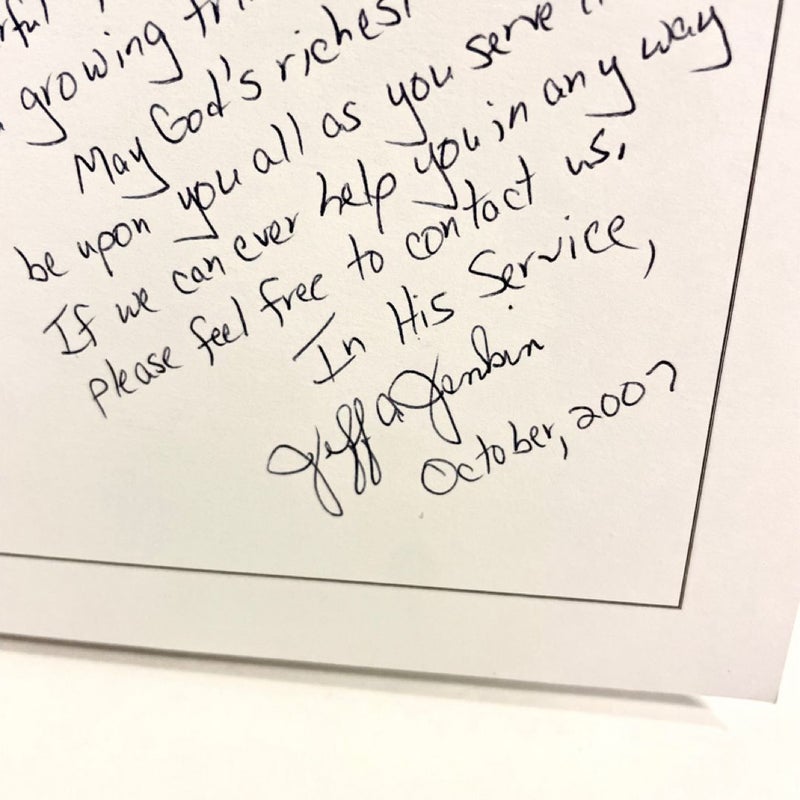 growing
May God's riches
be upon you all as you serve
If we can ever help you in any way
please feel free to contact us.
In His Service,
Jeff A Jenkin
October, 2007